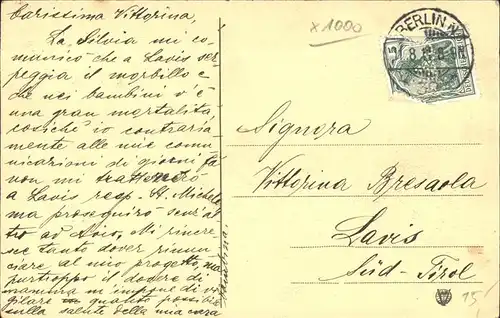 Carissima Vittorina,
La Silvia mi co-
municò che a Lavis ser-
peggia il morbillo e
che nei bambini v'è
una gran mortalità
cosichè io contraria
mente alle mie comu
nicazioni di giorni fa
non mi tratterrò
a Lavis resp. S. Michele
ma proseguirò senz'al
tro ad Avio. Mi rincre
ne tanto dover rinun
ciare al mio progetto, ma
purtroppo il dovere di
mamma m'impone di vi
gilare quanto possibile
sulla salute della mia cara
x 1000
BERLIN
Signora
Vittorina Bresaola
Lavis
Süd-Tirol
15/